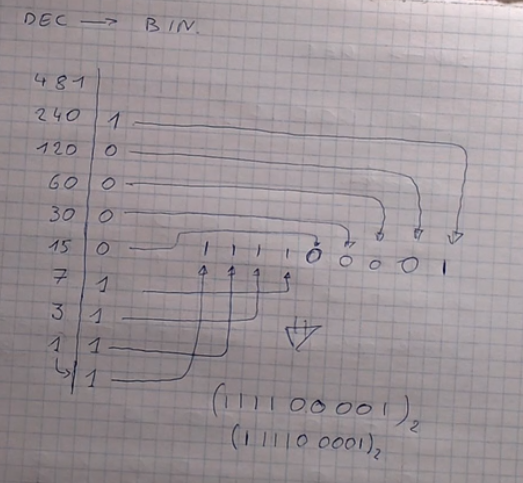 DEC → BIN.
481
240 1
120 0
60 0
30 0
15 0 1 1 1 1 0 0 0 0 1
7 1
3 1
1 1
↳ 1
(111100001)₂
(111100001)₂